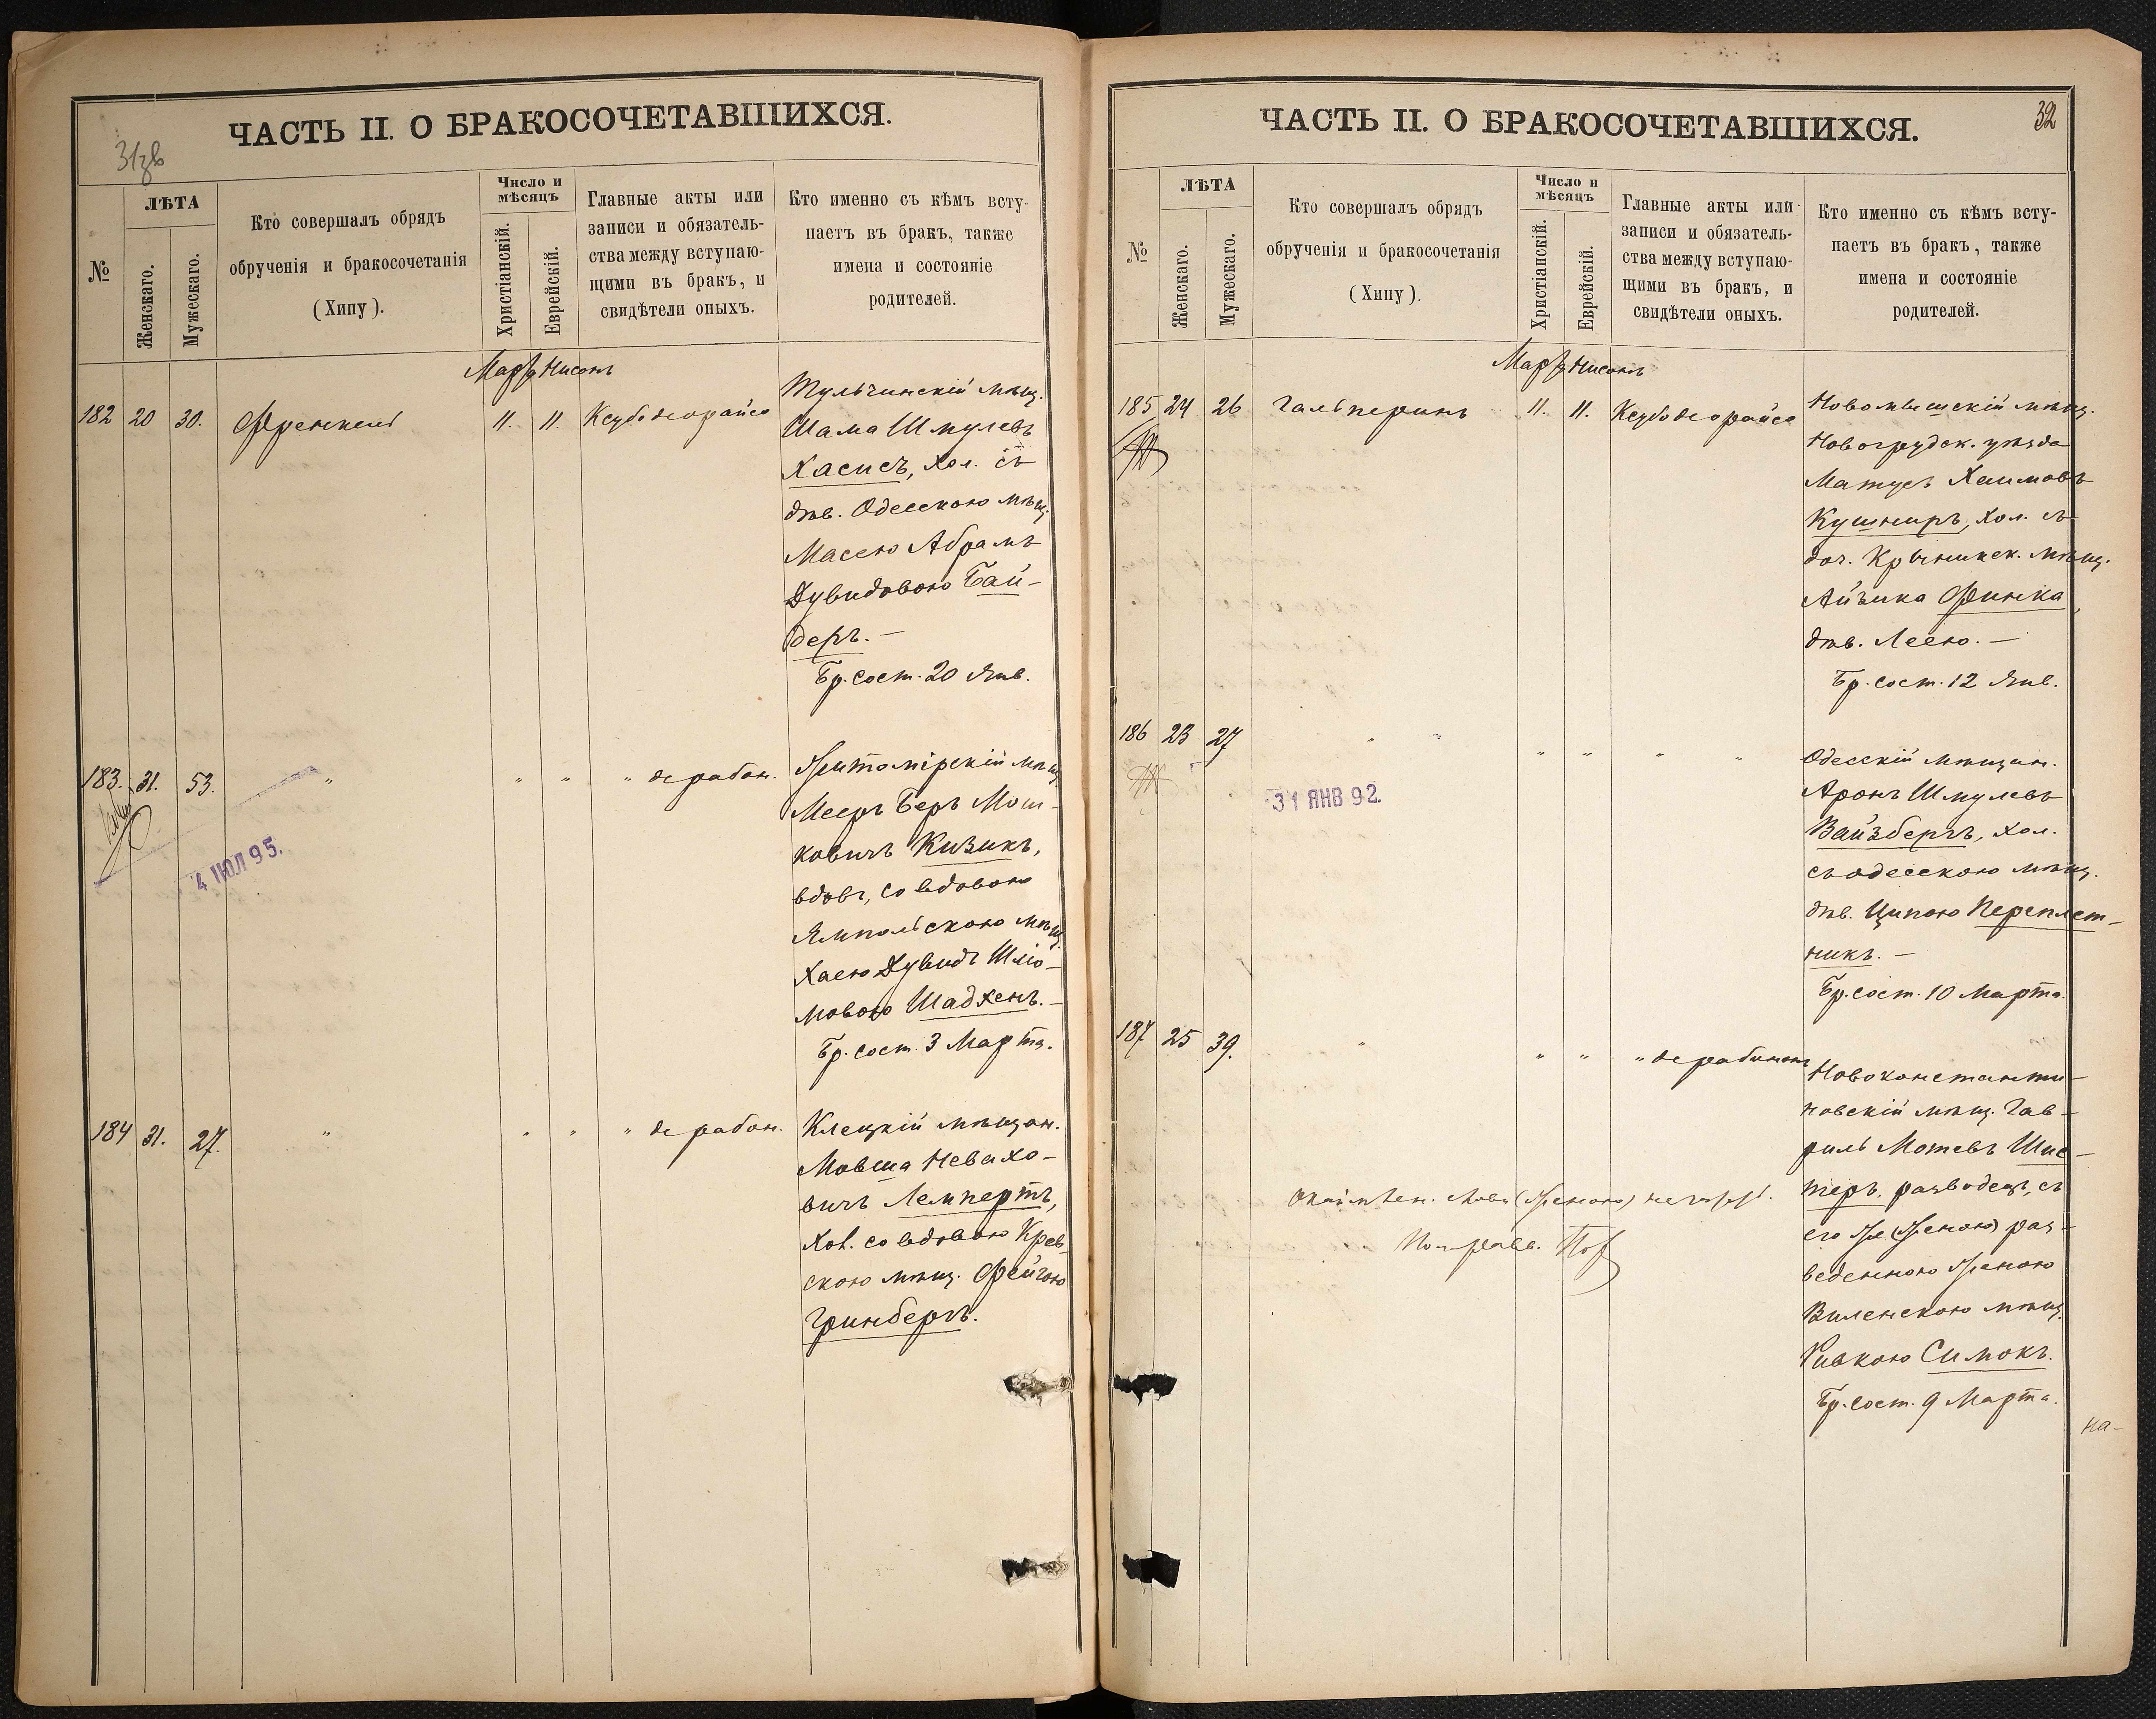 ЧАСТЬ II. О БРАКОСОЧЕТАВШИХСЯ.
№
ЛѢТА
Женскаго.
Мужескаго.
Кто совершалъ обрядъ
обрученія и бракосочетанія
(Хипу).
Число и
мѣсяцъ
Христіанскій.
Еврейскій.
Главные акты или
записи и обязатель-
ства между вступаю-
щими въ бракъ, и
свидѣтели оныхъ.
Кто именно съ кѣмъ всту-
паетъ въ бракъ, также
имена и состояніе
родителей.
182 20 30. Френкель 11. 11. Ксубо деорайсо
Тульчинскій мѣщ.
Шама Шмулевъ
Хасисъ, хол. съ
дѣв. Одесскою мѣщ.
Масею Абрамъ
Дувидовою Бай-
деръ. —
Бр. сост. 20 Янв.
183. 31. 53. " " " " де рабон.
Житомірскій мѣщ.
Мееръ Беръ Мош-
ковичъ Кизикъ,
вдовъ, со вдовою
Ямпольскою мѣщ.
Хаею Дувидъ Шліо-
мовою Шадхенъ. —
Бр. сост. 3 Марта.
4 ІЮЛ 95.
184 31. 27. " " " " де рабон.
Клецкій мѣщан.
Мовша Невахо-
вичъ Лемпертъ,
Хол. со вдовою Крев-
скою мѣщ. Фейгою
Гринбергъ.
ЧАСТЬ II. О БРАКОСОЧЕТАВШИХСЯ.
32
№
ЛѢТА
Женскаго.
Мужескаго.
Кто совершалъ обрядъ
обрученія и бракосочетанія
(Хипу).
Число и
мѣсяцъ
Христіанскій.
Еврейскій.
Главные акты или
записи и обязатель-
ства между вступаю-
щими въ бракъ, и
свидѣтели оныхъ.
Кто именно съ кѣмъ всту-
паетъ въ бракъ, также
имена и состояніе
родителей.
185 24 26 Гальперинъ 11. 11. Ксубо деорайсо
Новомышскій мѣщ.
Новогрудск. уѣзда
Матусъ Хаимовъ
Кушниръ, хол. съ
доч. Крыникск. мѣщ.
Айзика Финка,
дѣв. Леею. —
Бр. сост. 12 Янв.
186 23 27 " " " " "
31 ЯНВ 92.
Одесскій мѣщан.
Аронъ Шмулевъ
Вайзбергъ, хол.
съ одесскою мѣщ.
дѣв. Ципою Переплет-
никъ. —
Бр. сост. 10 Марта.
187 25 39. " " " " де рабонон
Новоконстанти-
новскій мѣщ. Гав-
риль Мотевъ Шис-
теръ, разводецъ, съ
его же (женою) раз-
веденною женою
Виленскою мѣщ.
Ривкою Симокъ.
Бр. сост. 9 Марта.
на-